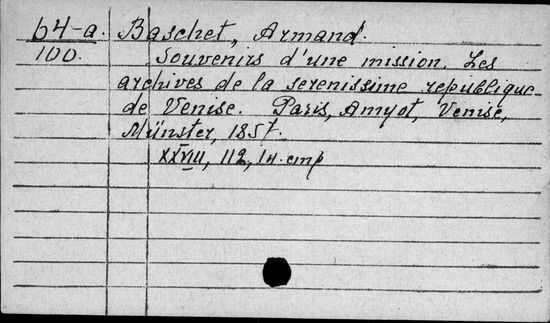 64-a. Baschet, Armand.
100. Souvenirs d'une mission. Les
archives de la serenissime republique
de Venise. Paris, Amyot, Venise,
Münster, 1857.
XXVIII, 112, 14. стр